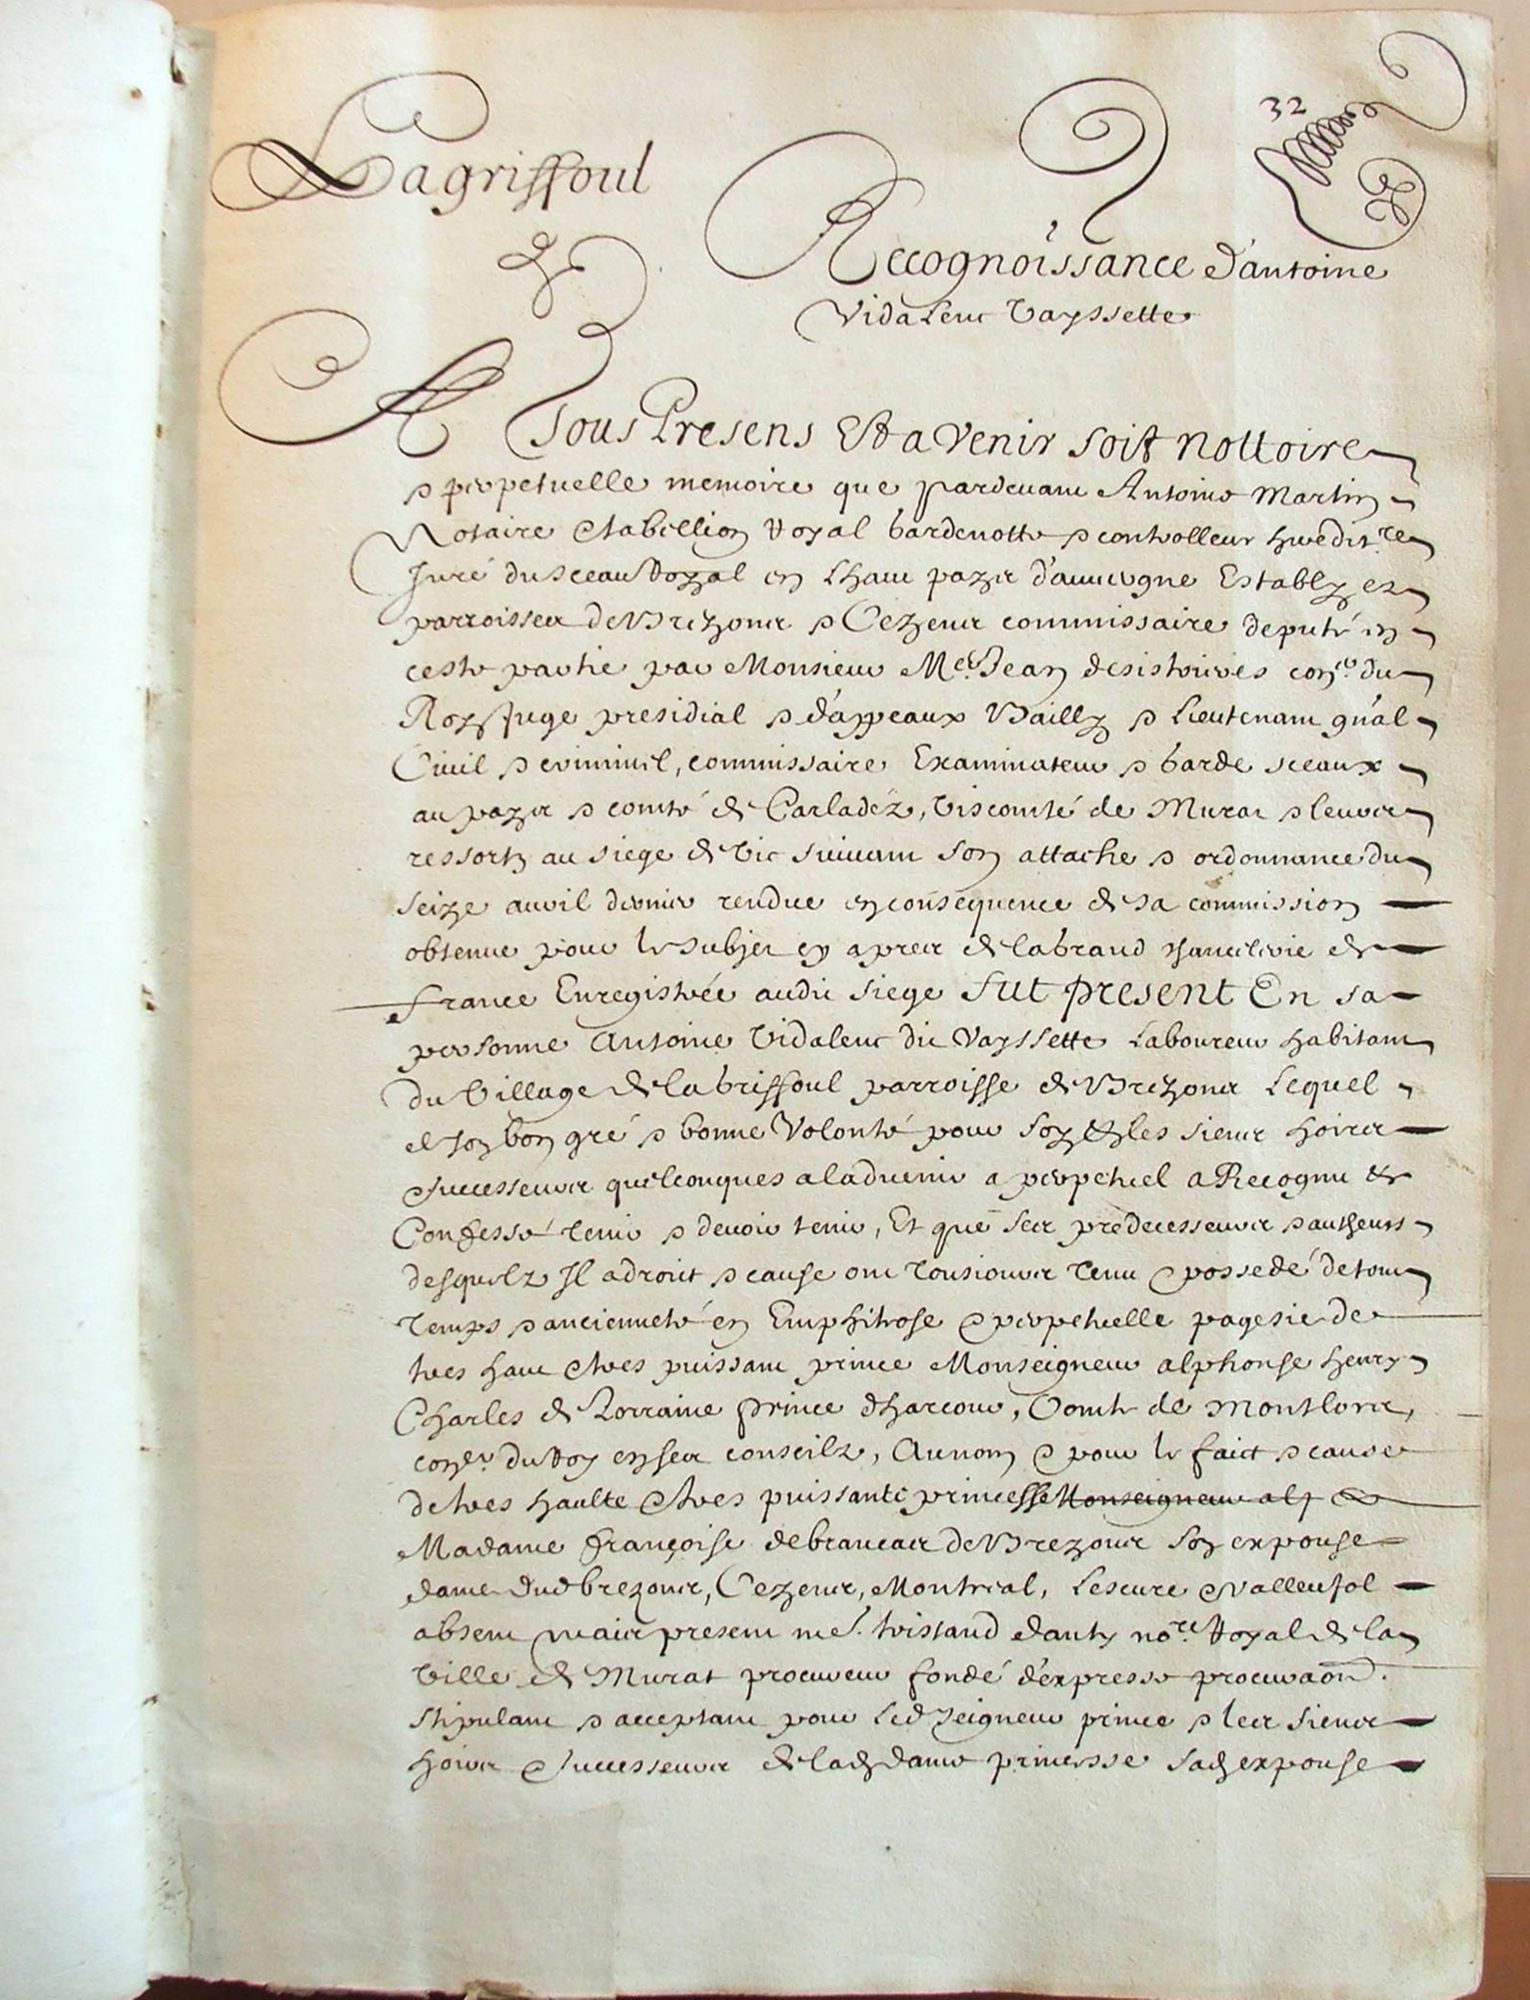 Lagriffoul
32
Recognoissance d'antoine
Vidalenc Vayssette
A Tous Presens Et a Venir soit nottoire
& perpetuelle memoire que pardevant Antoine Martin
Notaire & tabellion Royal gardenotte & controlleur hredit.re
Juré du sceau Royal en lhaut pazis d'auvergne Estably ez
parroisses de Brezons & Cezens commissaire deputé en
ceste partie par Monsieur Me. Jean desistrieres con.er du
Roy Juge presidial & d'appeaux Bailly & Lieutenant gnâl
Civil & criminel, commissaire Examinateur & garde sceaux
au pazis & comté de Carladéz, Viscomté de Murat & leurs
ressortz au siege de Vic suivant son attache & ordonnance du
seize avril dernier rendue en consequence de sa commission
obtenue pour le subjet cy apres de la grand chancelerie de
france Enregistrée audit siege fut present En sa
personne Antoine Vidalenc dit Vayssette Laboureur habitant
du Village de lagriffoul parroisse de Brezons Lequel
de son bon gré & bonne Volonté pour soy & les siens hoirs
& successeurs quelconques a ladvenir a perpetuel a Recognu &
Confessé tenir & devoir tenir, Et que ses predecesseurs & autheurs
desquelz Il a droict & cause ont tousiours tenu & possedé de tout
temps & ancienneté en Emphitose & perpetuelle pagesie de
tres haut & tres puissant prince Monseigneur alphonse henry
Charles de Lorraine prince dharcour, Comte de Montlaur,
con.er du Roy en ses conseilz, Au nom & pour le faict & cause
de tres haulte & tres puissante princesse Monseigneur alp
Madame françoise de brancas de Brezons son expouse
dame dud brezons, Cezens, Montreal, Lescure & Valleujol
absent mais present me. tristand danty no.re Royal de la
Ville de Murat procureur fondé d'expresse procuraôn
stipulant & acceptant pour Led seigneur prince & les siens
hoirs & successeurs de lad dame princesse sad expouse